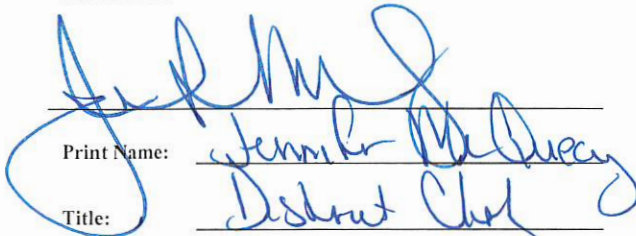 Print Name: Jennifer McQueary
Title: District Clerk